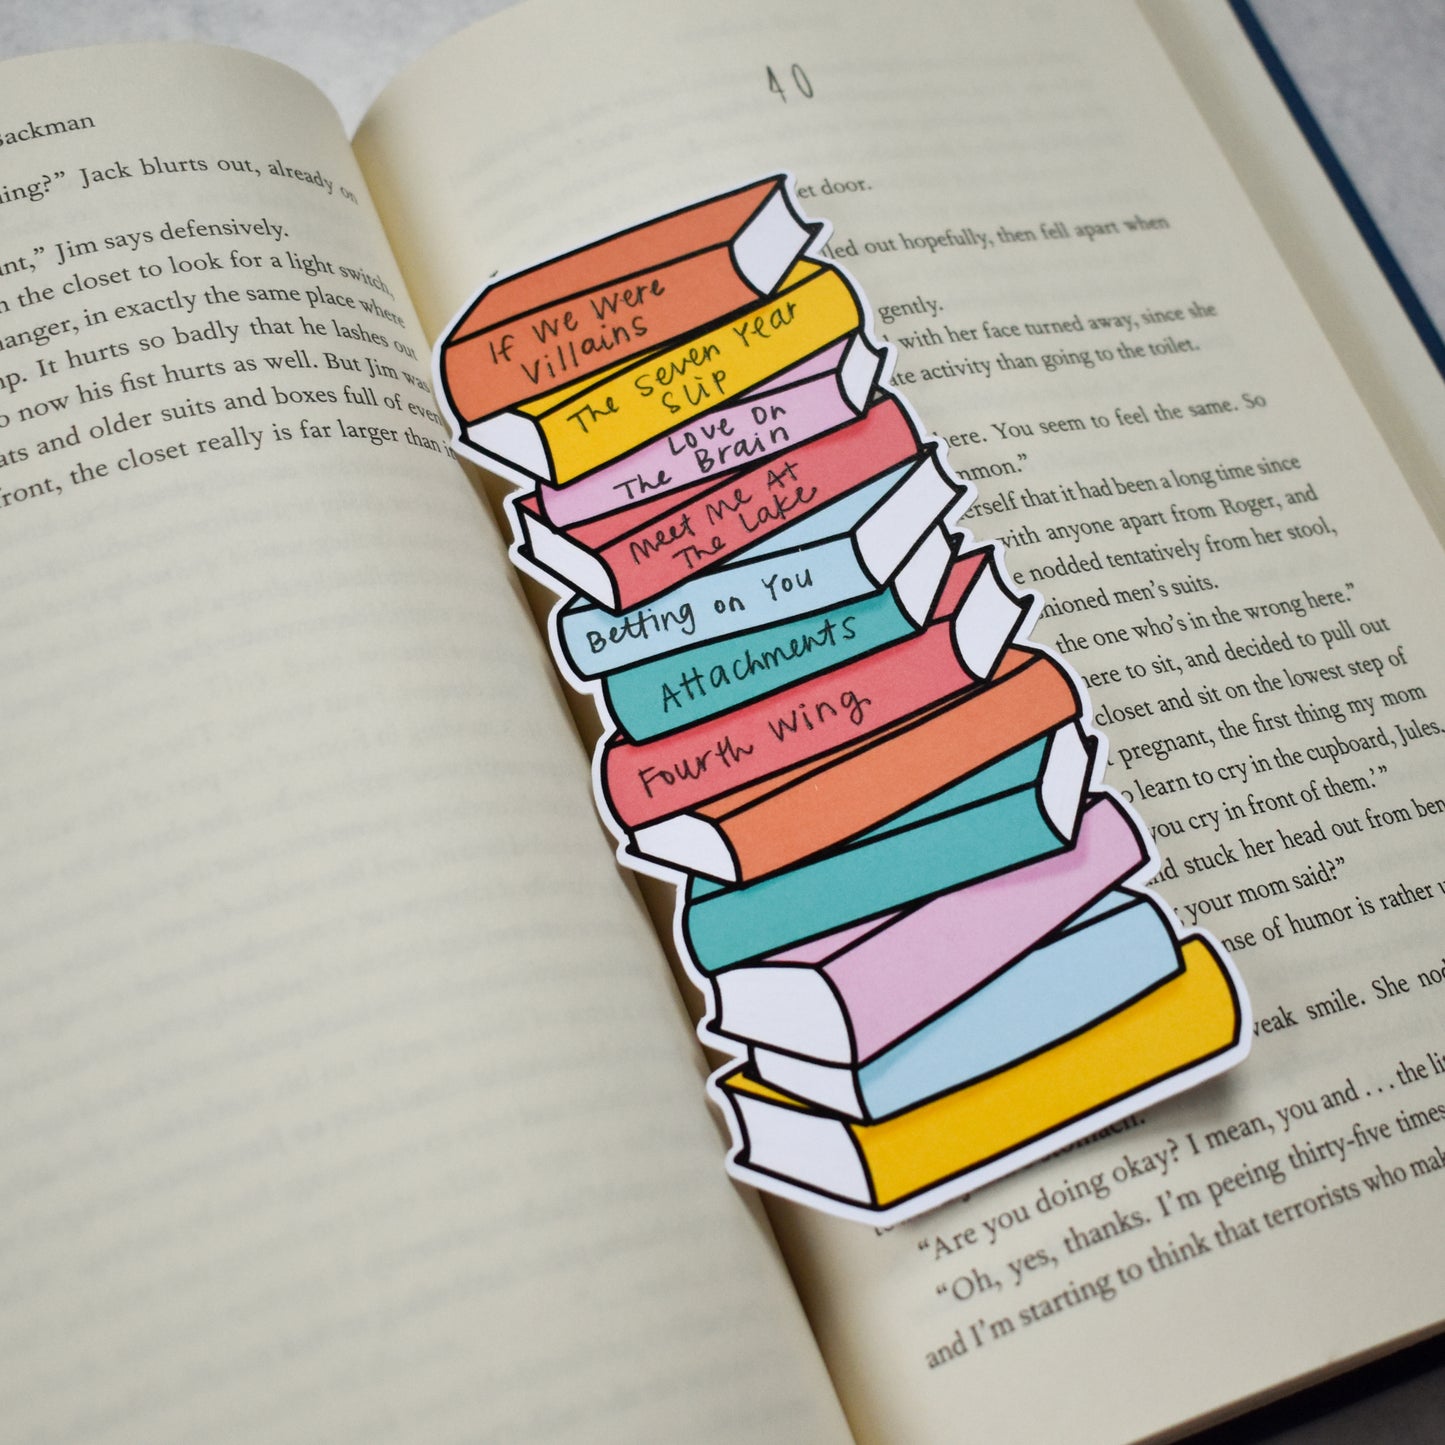 Backman
ing?” Jack blurts out, already on
nt,” Jim says defensively.
the closet to look for a light switch,
anger, in exactly the same place where
p. It hurts so badly that he lashes out
now his fist hurts as well. But Jim was
ats and older suits and boxes full of even
front, the closet really is far larger than
40
et door.
led out hopefully, then fell apart when
gently.
with her face turned away, since she
ate activity than going to the toilet.
here. You seem to feel the same. So
mmon.”
erself that it had been a long time since
with anyone apart from Roger, and
e nodded tentatively from her stool,
hioned men’s suits.
the one who’s in the wrong here.”
here to sit, and decided to pull out
closet and sit on the lowest step of
pregnant, the first thing my mom
o learn to cry in the cupboard, Jules,
you cry in front of them.’”
nd stuck her head out from ben
your mom said?”
nse of humor is rather u
weak smile. She nod
stomach.
“Are you doing okay? I mean, you and . . . the li
“Oh, yes, thanks. I’m peeing thirty-five times
and I’m starting to think that terrorists who mak
If We Were
Villains
The Seven Year
Slip
Love On
The Brain
Meet Me At
The Lake
Betting on You
Attachments
Fourth Wing